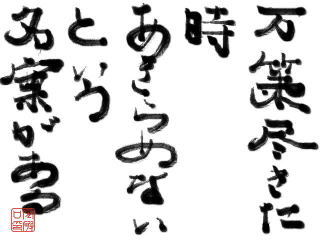 万策尽きた
時
あきらめない
という
名案がある